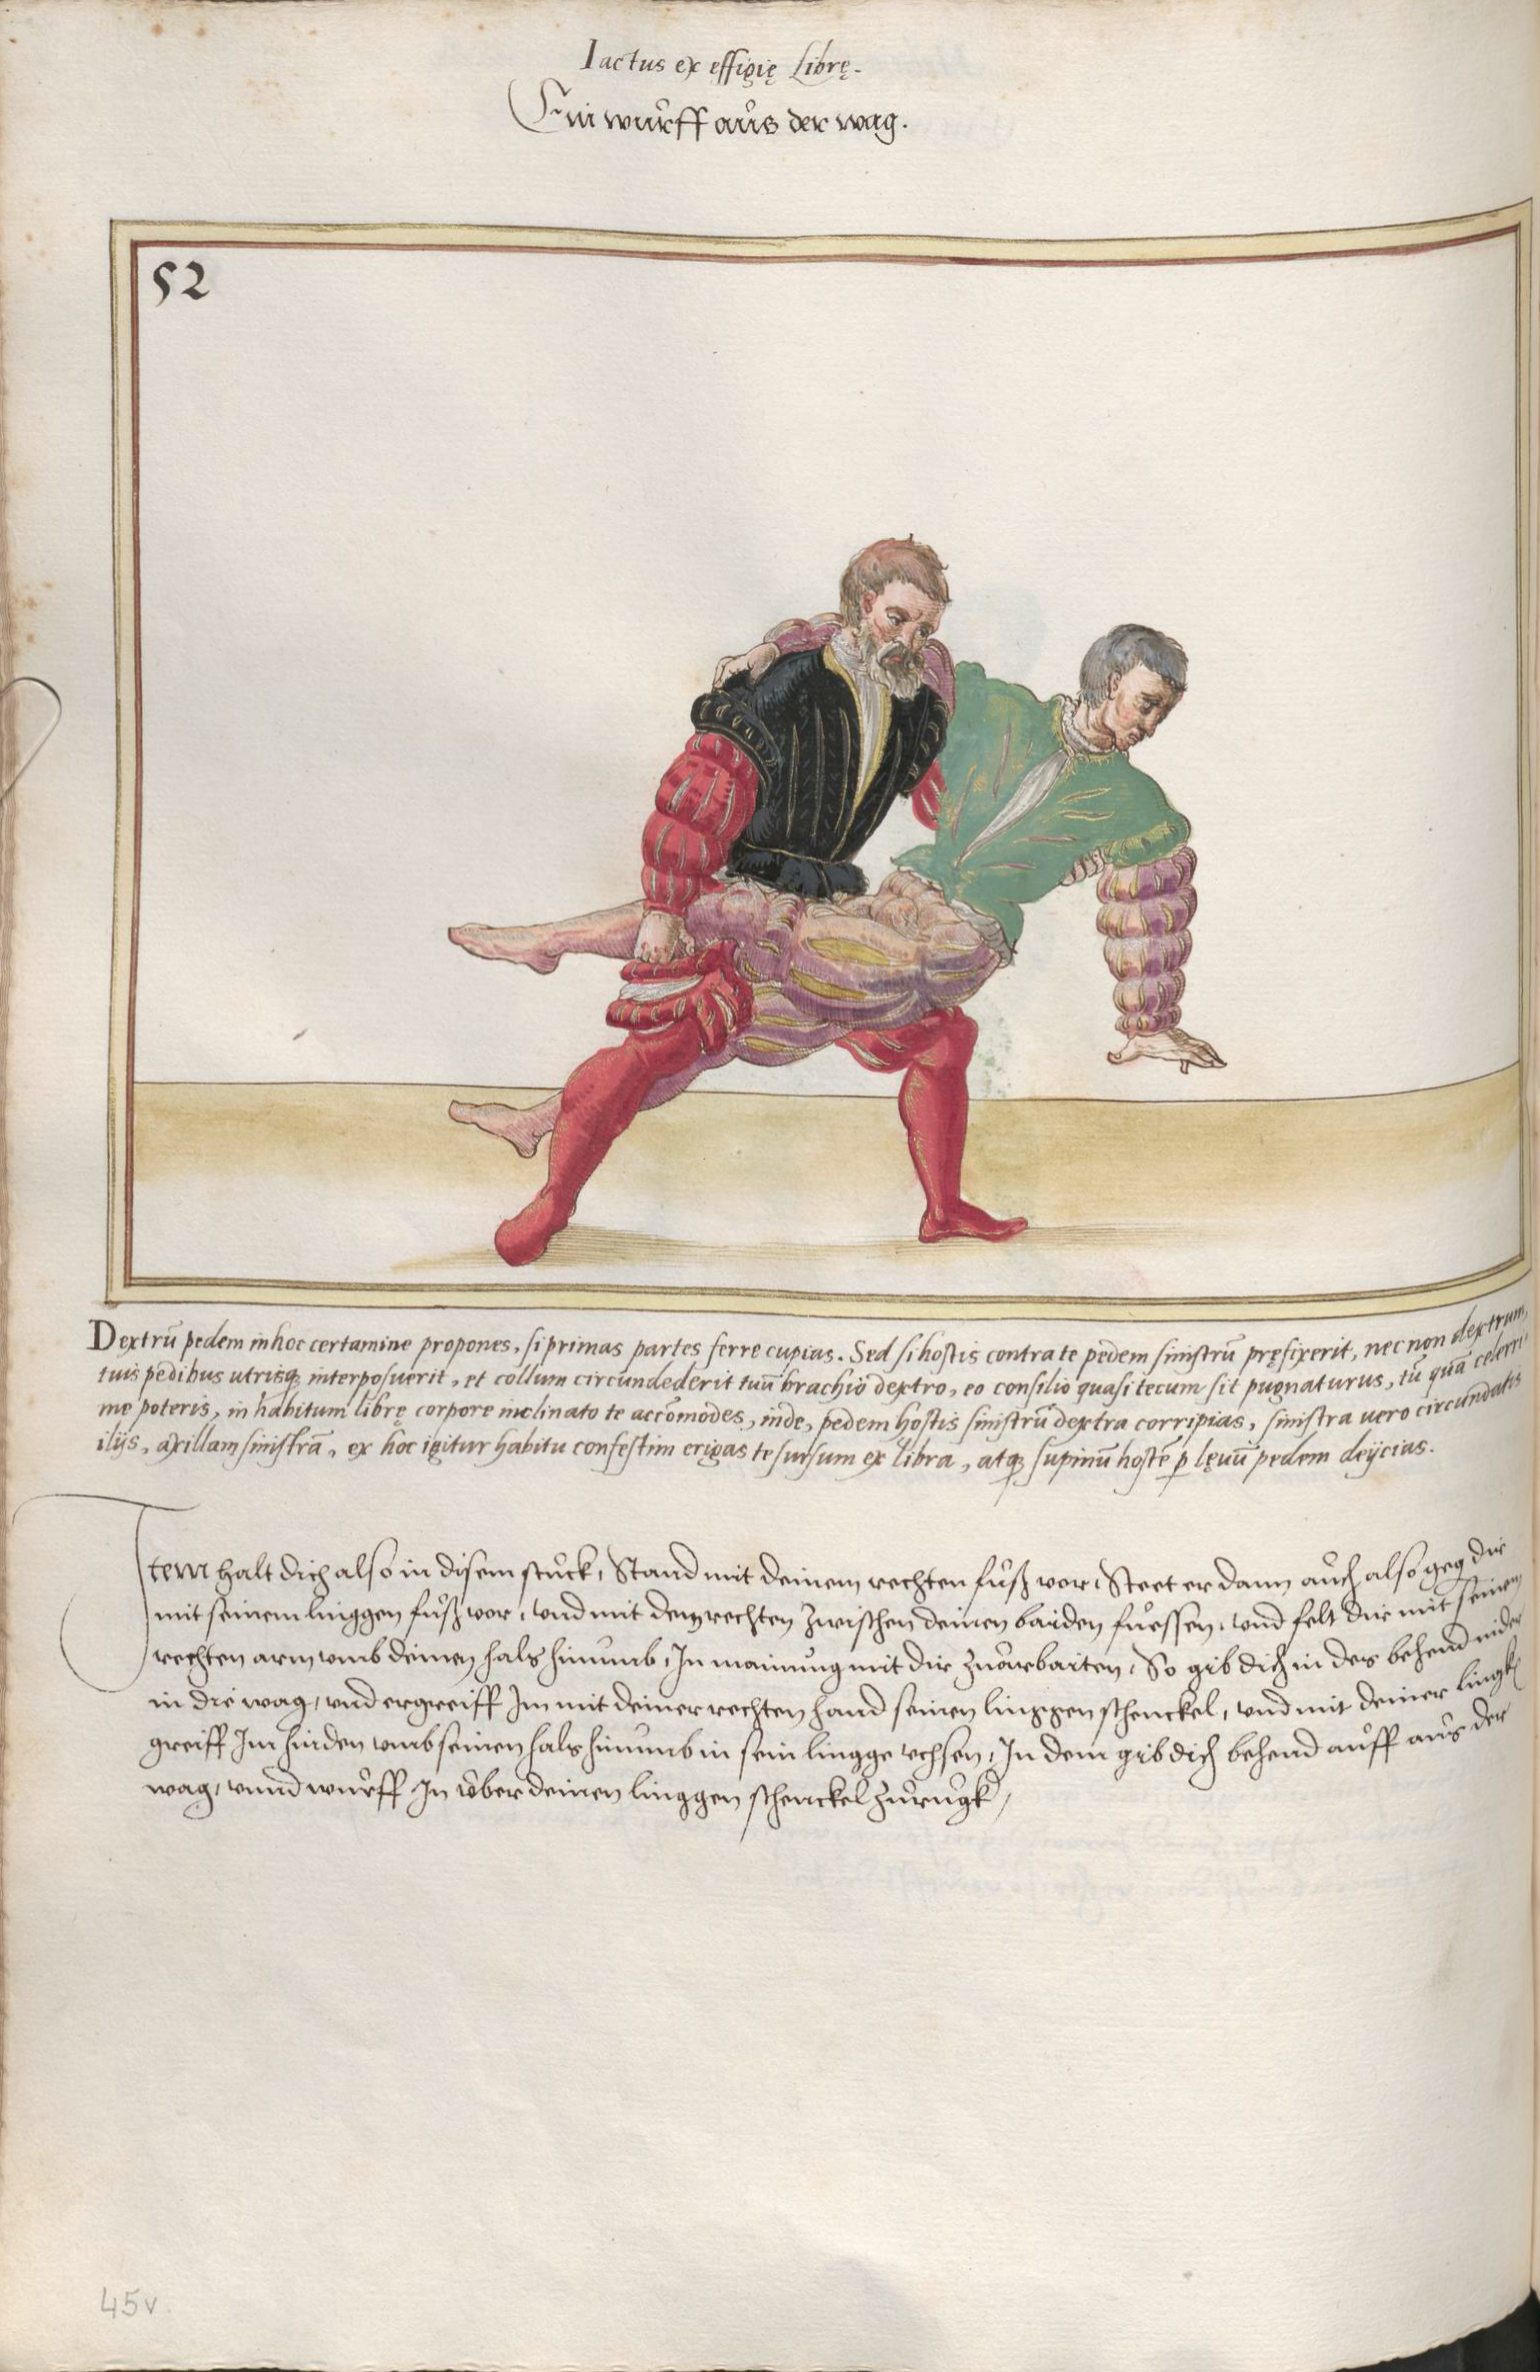 Iactus ex effigię Librę.
Ein wurff aus der wag.
52
Dextrū pedem in hoc certamine propones, si primas partes ferre cupias. Sed si hostis contra te pedem sinistrū pręfixerit, nec non dextrum,
tuis pedibus utrisq; interposuerit, et collum circundederit tuū brachio dextro, eo consilio quasi tecum sit pugnaturus, tū quā celerri
me poteris, in habitum librę corpore inclinato te accōmodes, inde, pedem hostis sinistrū dextra corripias, sinistra uero circundatis
ilijs, axillam sinistrā, ex hoc igitur habitu confestim erigas te sursum ex libra, atq; supinū hostē p lęuū pedem deijcias.
Item halt dich also in disem stuck, Stand mit deinem rechten fuß vor, Steet er dann auch also geg dir
mit seinem linggen fuß vor, vnd mit dem rechten zwischen deinen baiden fuessen, vnd felt dir mit seinem
rechten arm vmb deinen hals hinumb, In mainung mit dir zuarbaiten, So gib dich in des behend nider
in die wag, vnd ergreiff Im mit deiner rechten hand seinen linggen schenckel, vnd mit deiner lingk
greiff Im hinden vmb seinen hals hinumb in sein lingge vchsen, In dem gib dich behend auff aus der
wag, vnnd wurff In vber deinen linggen schenckel zurugk,
45v